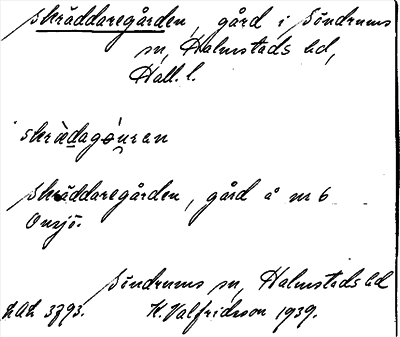 Skräddaregården, gård i Söndrums
sn, Halmstads hd,
Hall. l.
skrædagóuran
Skräddaregården, gård å nr 6
Onsjö.
Söndrums sn, Halmstads hd
K. Valfridsson 1939.